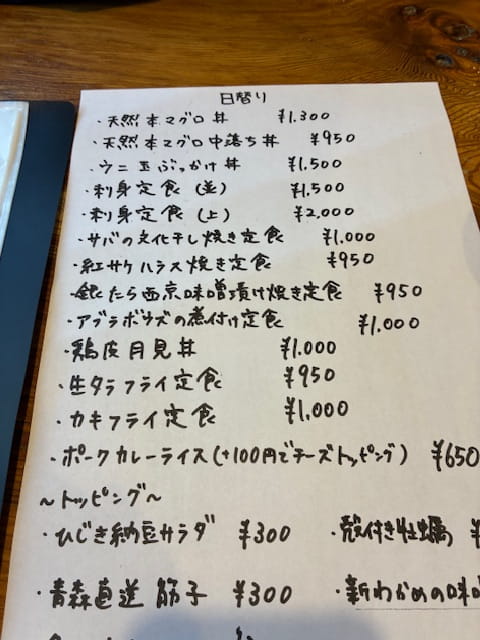 日替り
・天然本マグロ丼 ¥1.300
・天然本マグロ中落ち丼 ¥950
・ウニ玉ぶっかけ丼 ¥1.500
・刺身定食(並) ¥1,500
・刺身定食(上) ¥2,000
・サバの文化干し焼き定食 ¥1,000
・紅サケハラス焼き定食 ¥950
・銀たら西京味噌漬け焼き定食 ¥950
・アブラボウズの煮付け定食 ¥1,000
・鶏皮月見丼 ¥1.000
・生タラフライ定食 ¥950
・カキフライ定食 ¥1,000
・ポークカレーライス(+100円でチーズトッピング) ¥650
~トッピング~
・ひじき納豆サラダ ¥300 ・殻付き牡蠣 ¥
・青森直送筋子 ¥300 ・新わかめの味